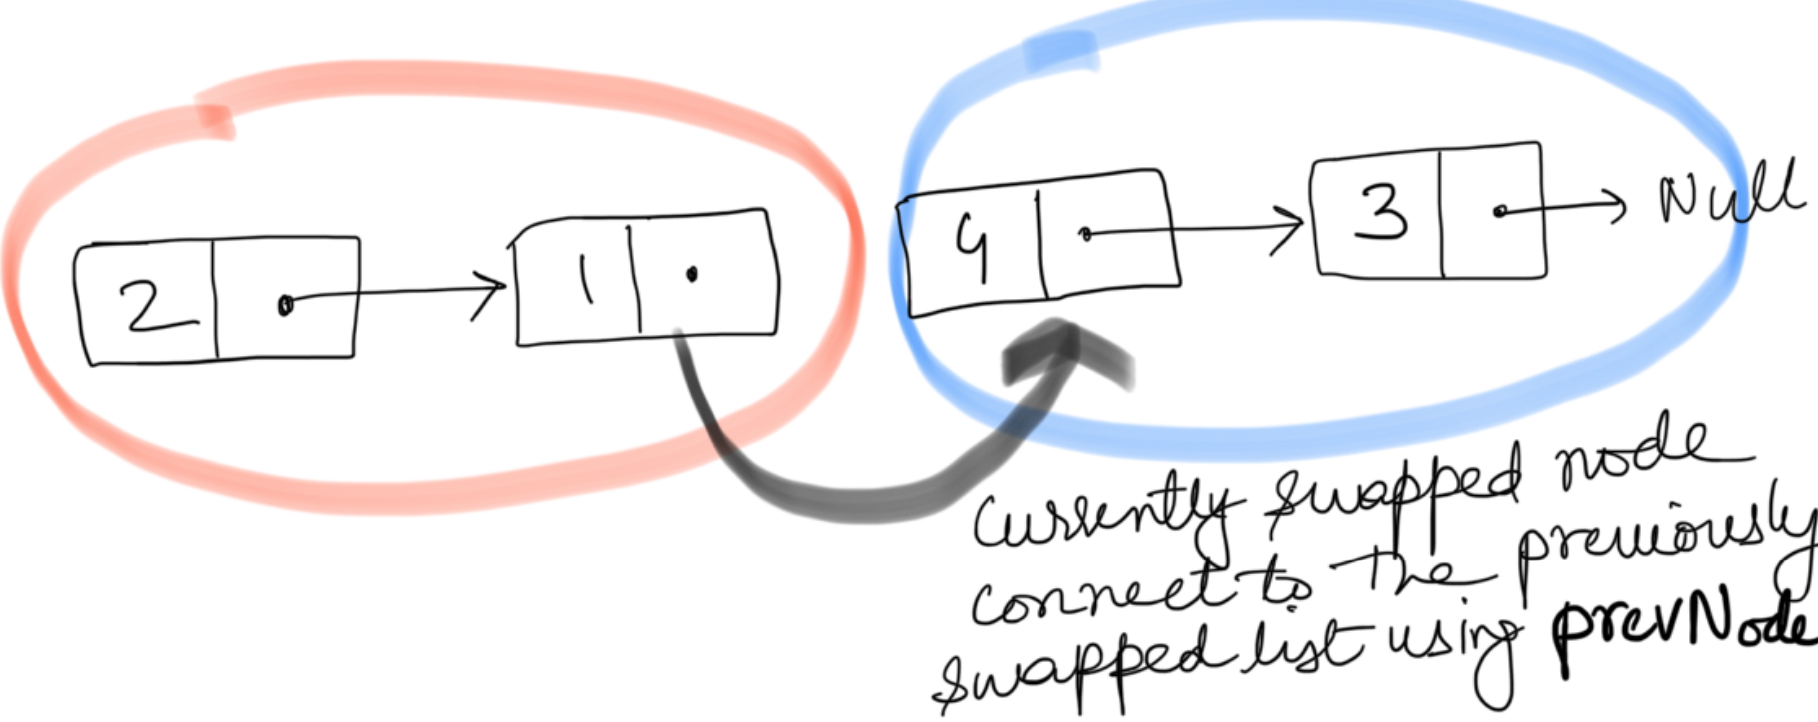 2 1 4 3 Null
Currently swapped node
connect to the previously
swapped list using prevNode